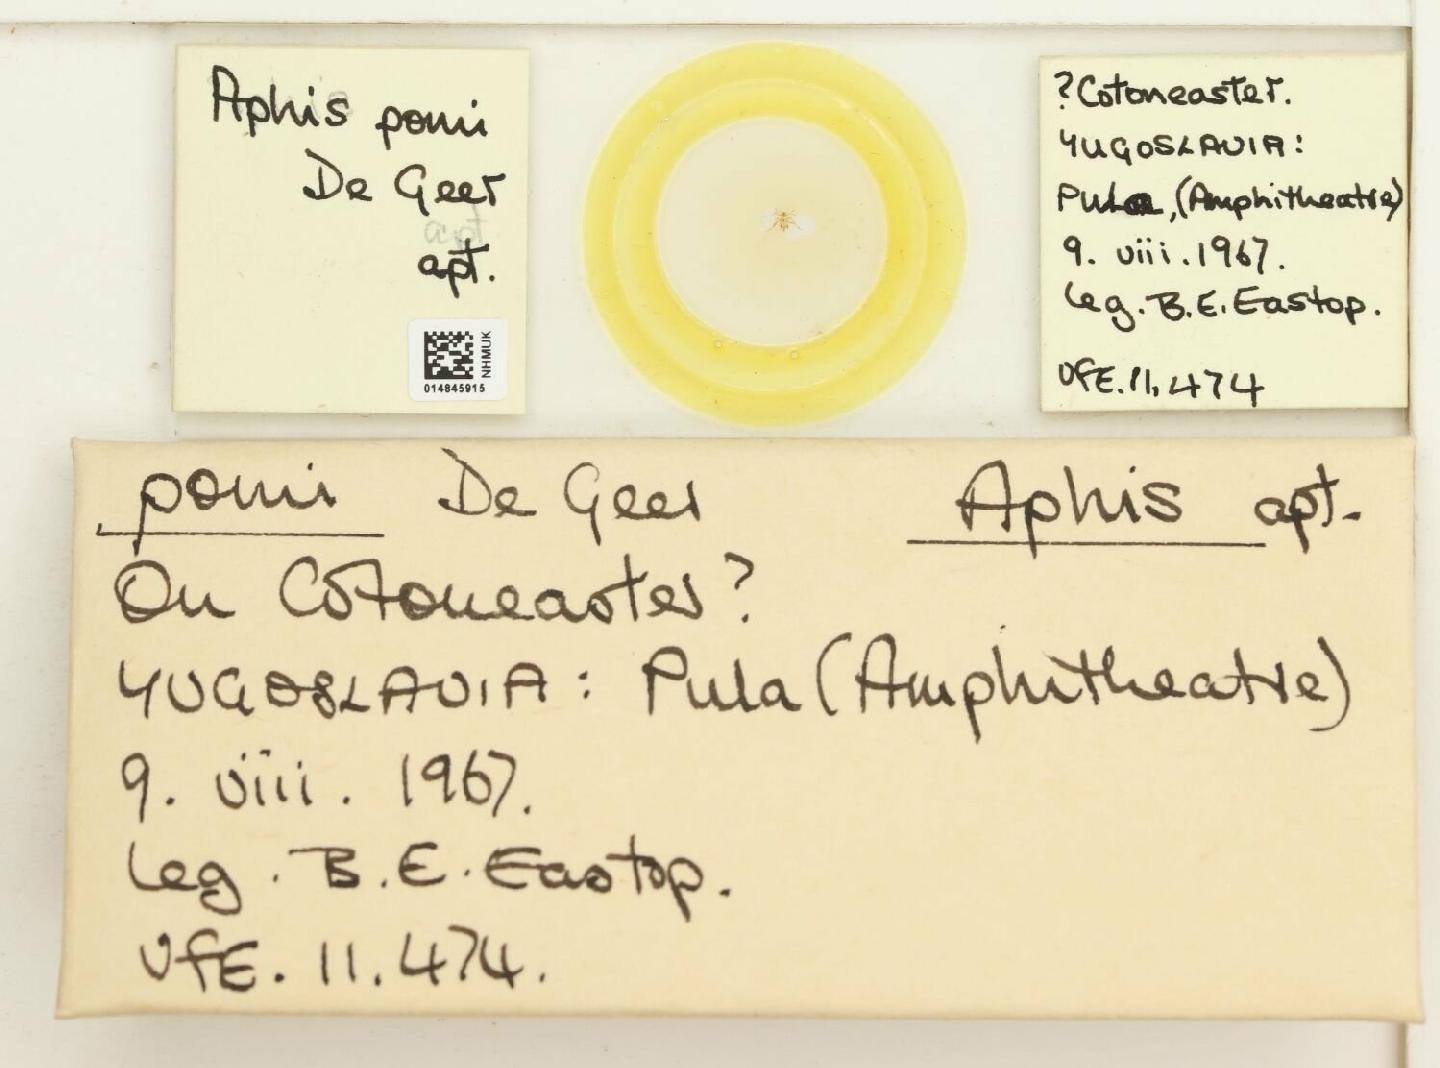 Aphis pomi
De Geer
apt
apt.
NHMUK
014845915
?Cotoneaster.
YUGOSLAVIA:
Pula, (Amphitheatre)
9. viii. 1967.
leg. B.E. Eastop.
VfE. 11,474
pomi De Geer Aphis apt.
On Cotoneaster?
YUGOSLAVIA: Pula (Amphitheatre)
9. viii. 1967.
leg. B.E. Eastop.
VfE. 11.474.